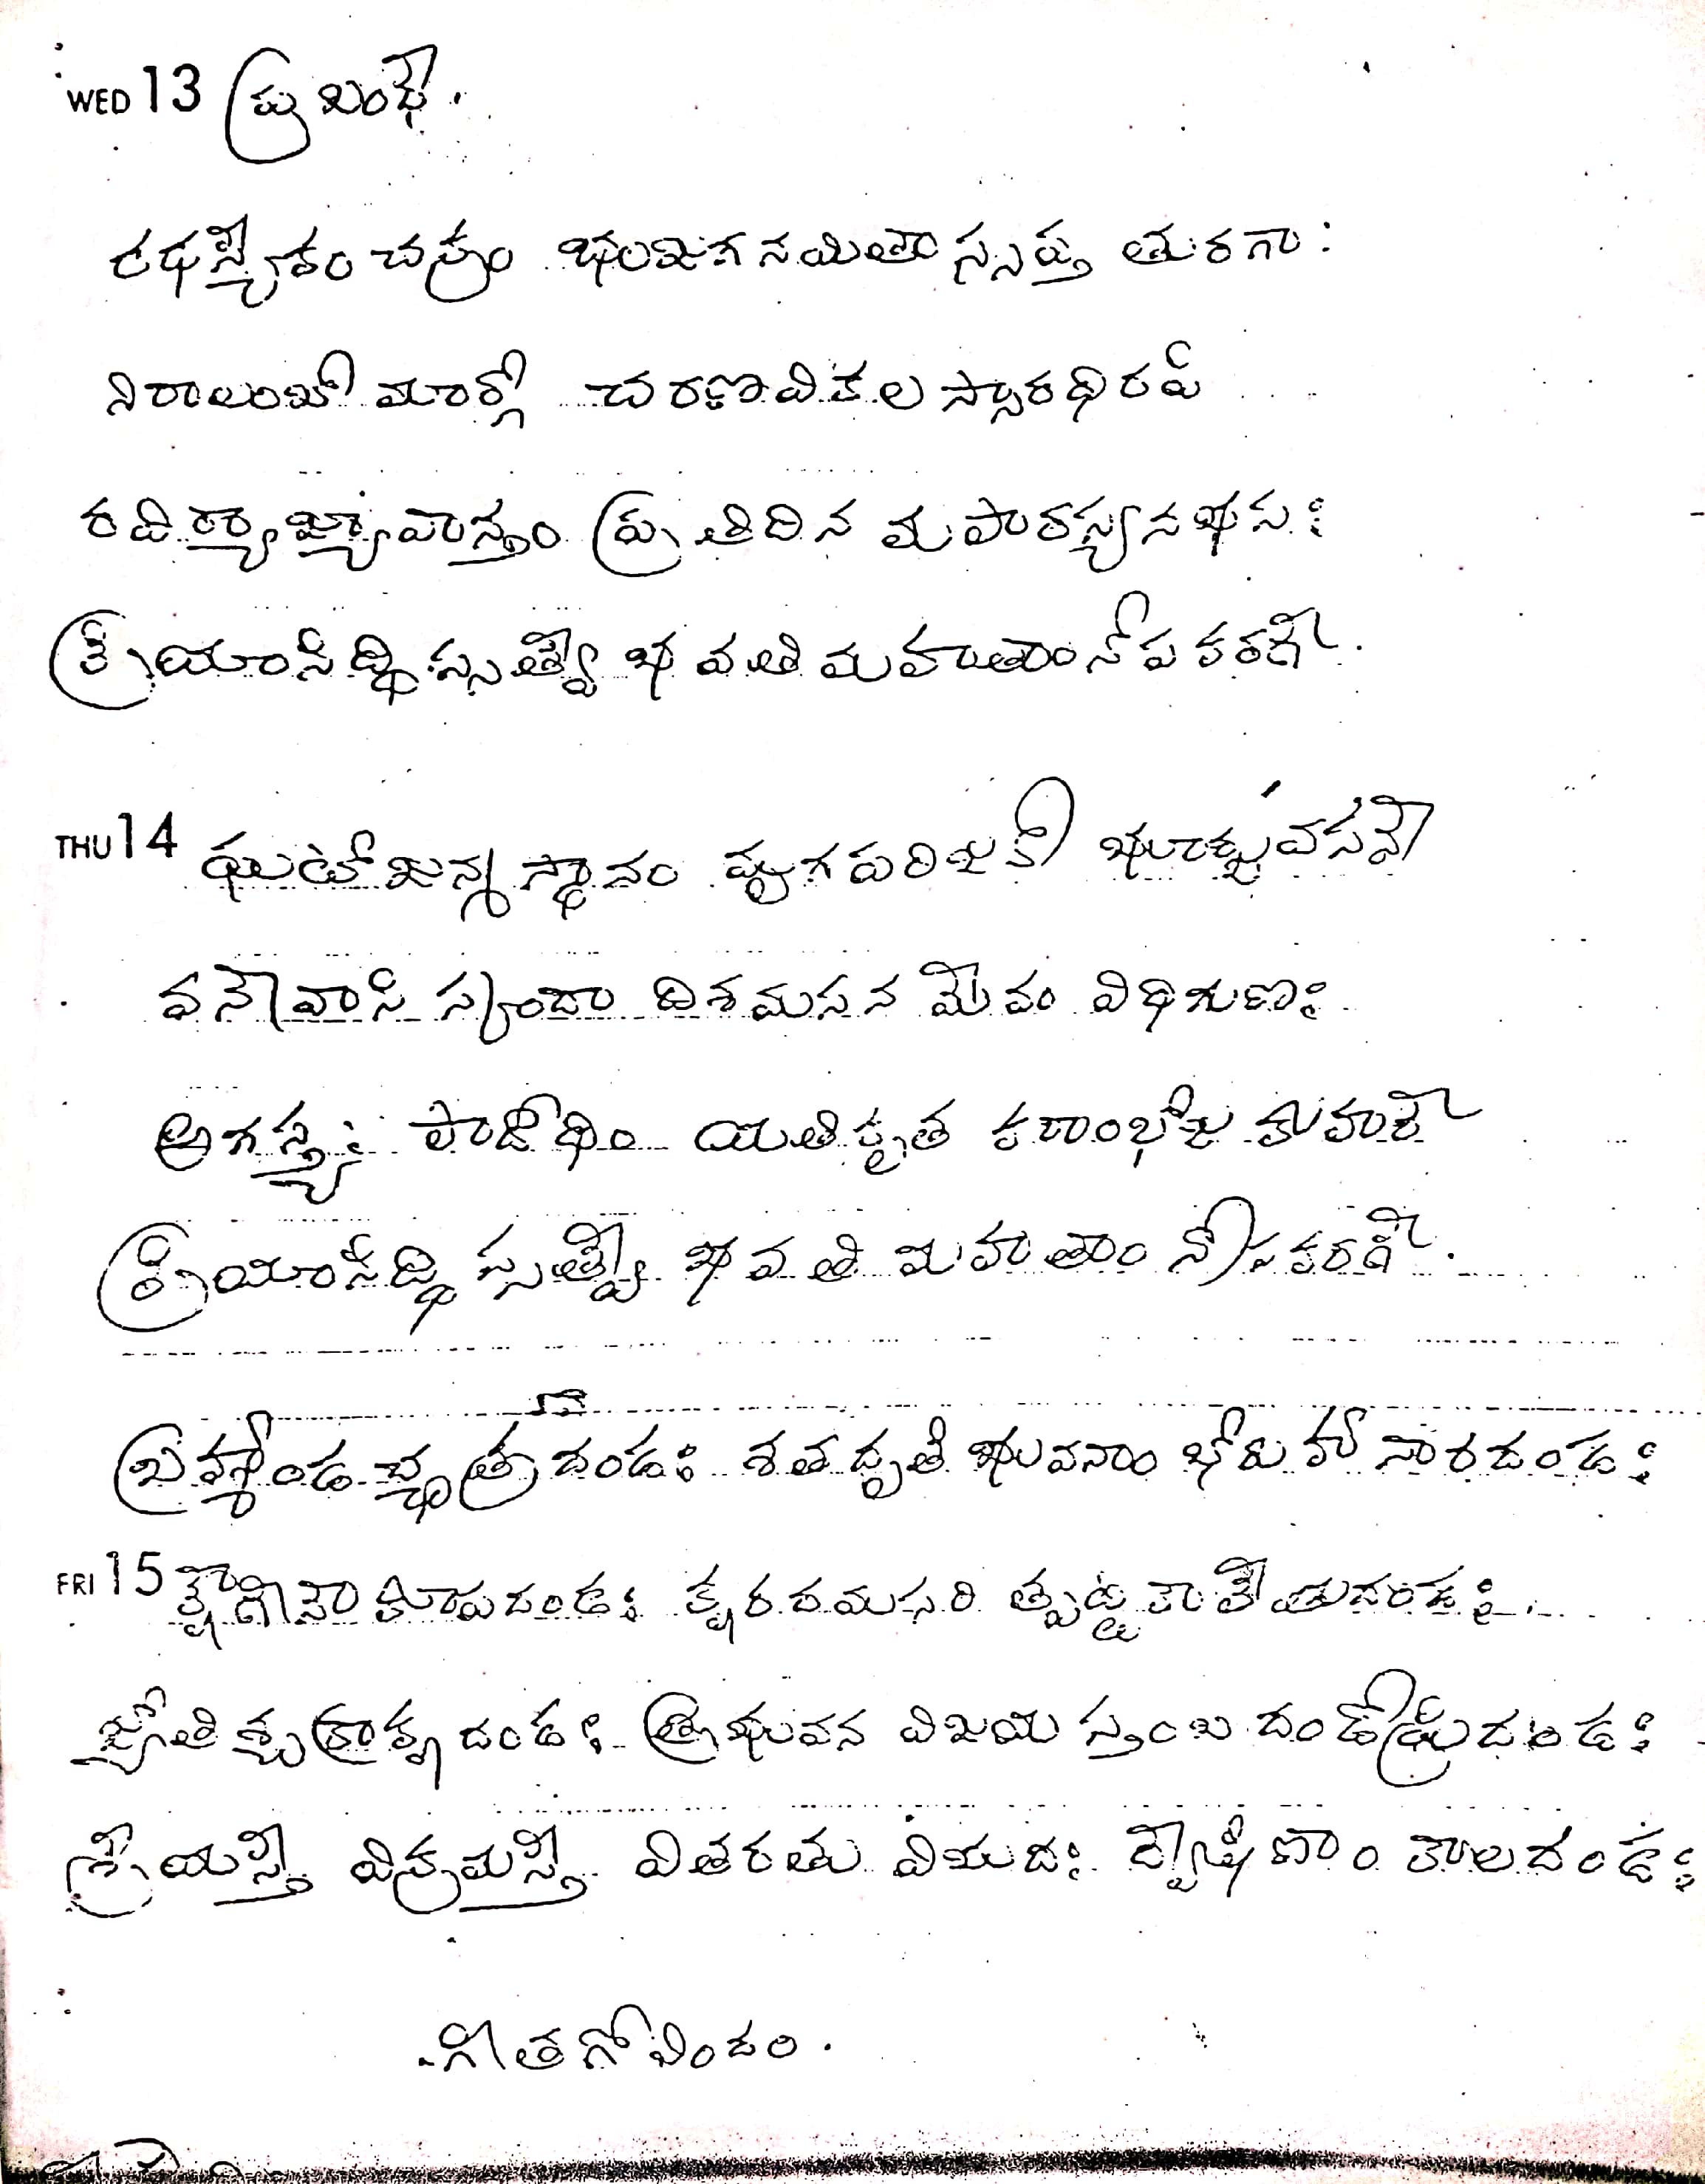 WED 13 ప్రబంధే.
రథస్యేకం చక్రం భుజగనమితాస్సప్త తురగాః
నిరాలంబో మార్గో చరణవికల స్సారథిరపి
రవిర్యాజ్యావాస్తం ప్రతిదిన మపారస్యనభసః
క్రియాంసిద్ధిస్సత్వే భవతి మహతాంనోపకరణే.
THU 14 ఘటో జన్మస్థానం మృగపరిజనో భూర్జవసనో
వనేవాసి స్కందా దిశమసన మేవం విధిగుణః
అగస్త్యః పాథోధిం యతికృత కరాంభోజ కుహరే
క్రియాంసిద్ధి స్సత్వే భవతి మహతాం నోపకరణే.
బ్రహ్మాండచ్ఛత్రదండః శతధృతి భువనాం భోరుహో నాళదండః
FRI 15 క్షోణీనౌ కూపదండః క్షరదమసరి త్పట్టికా కేతుదండః
జ్యోతిశ్చక్రాక్షదండః త్రిభువన విజయ స్తంబ దండోఙ్ఘ్రిదండః
శ్రేయస్తే విక్రమస్తే వితరతు విబుదః ద్వేషిణాం కాలదండః
గీతగోవిందం.